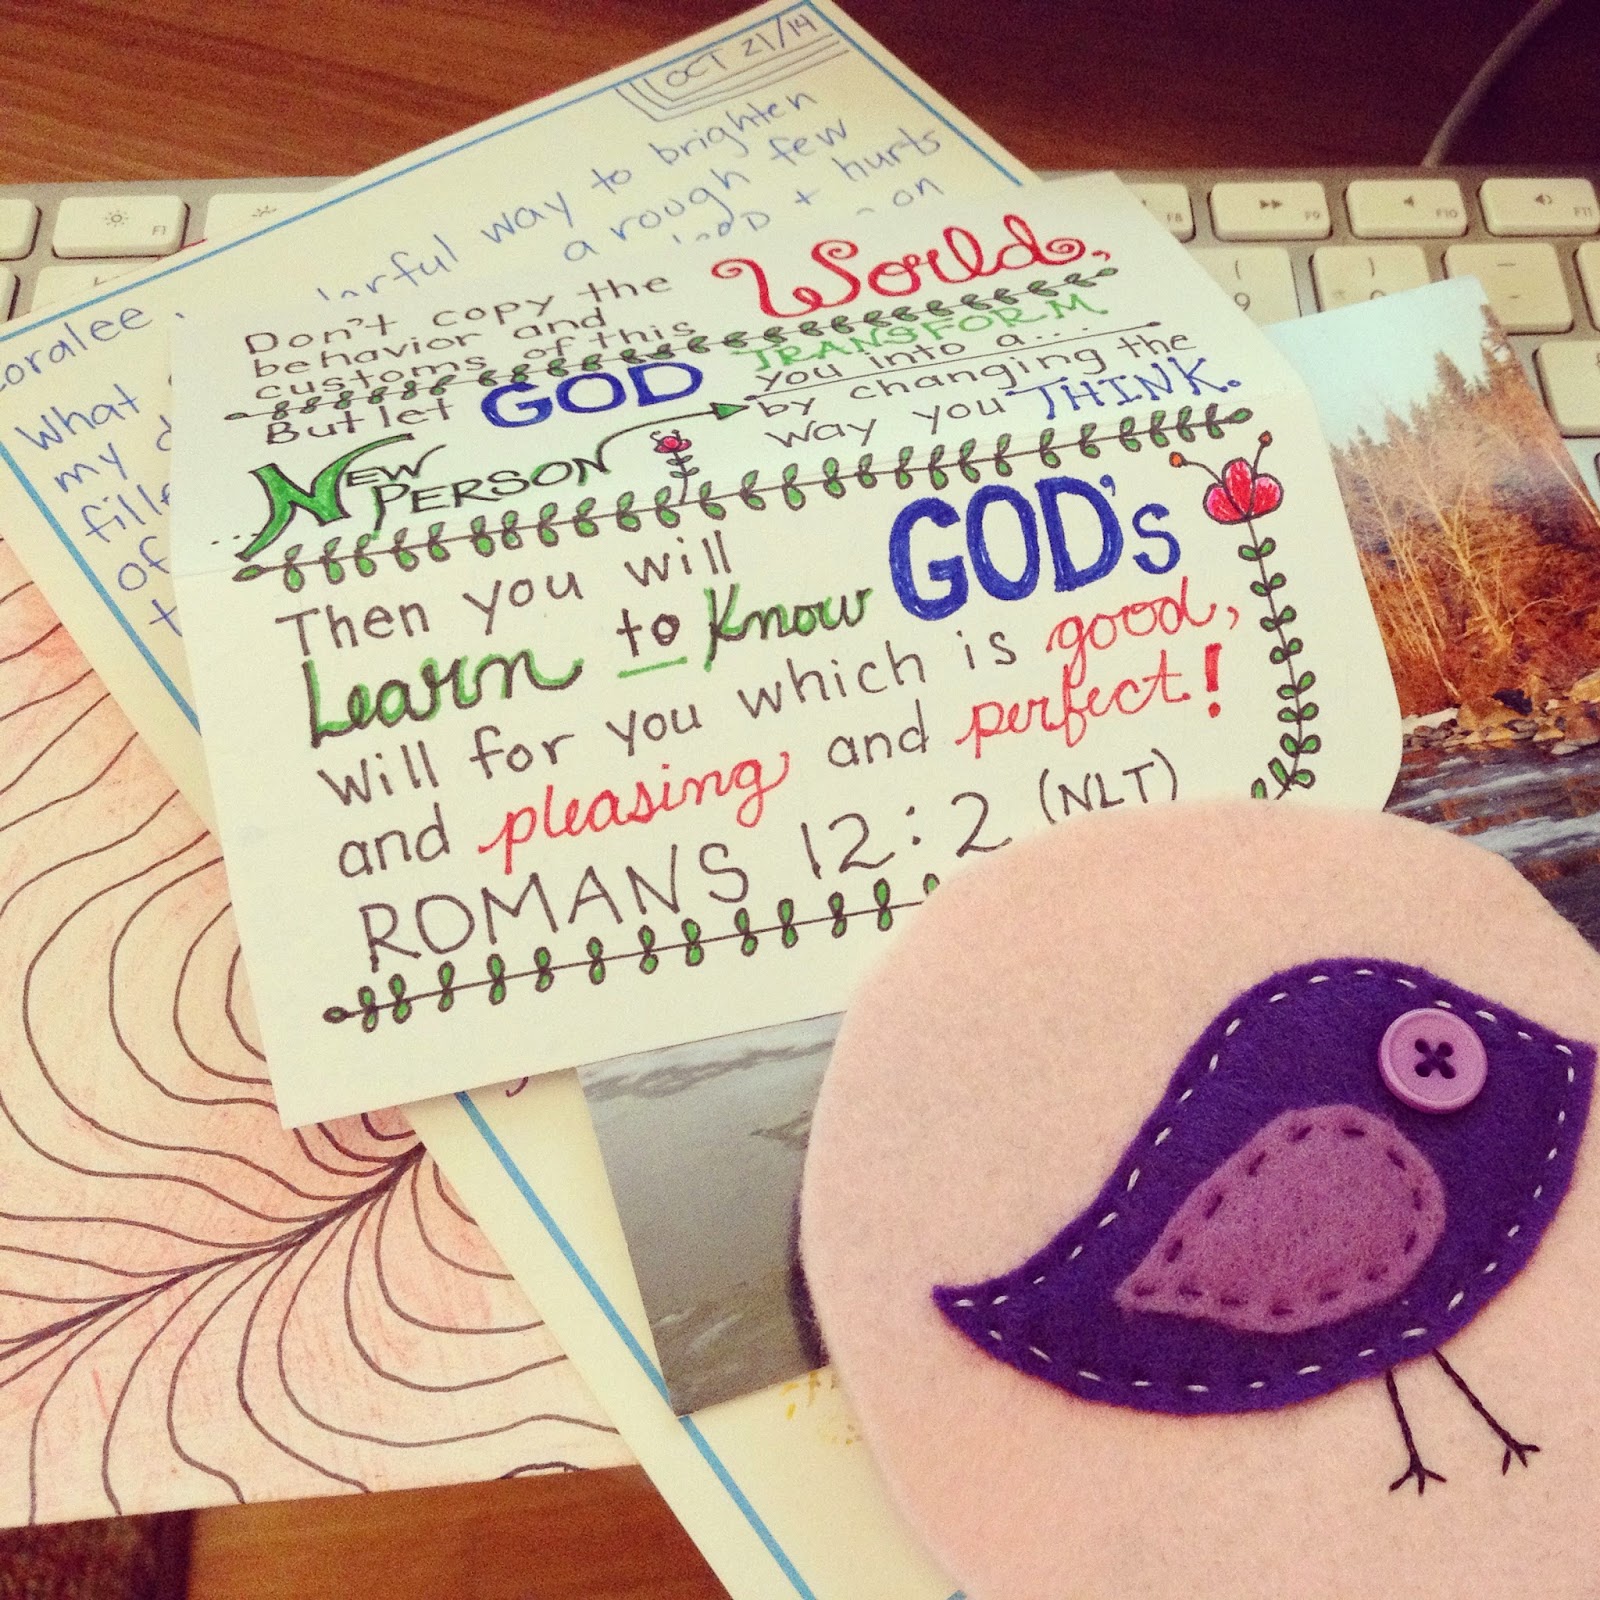 OCT 21/14
way to brighten
a rough few
+ hurts
on
What
my
of
Don't copy the
behavior and
customs of this World,
But let GOD TRANSFORM
you into a...
NEW PERSON
by changing the
way you THINK.
Then you will
Learn to Know GOD's
will for you which is good,
and pleasing and perfect!
ROMANS 12:2 (NLT)
F1
F8
F9
F10
F11
(
9
)